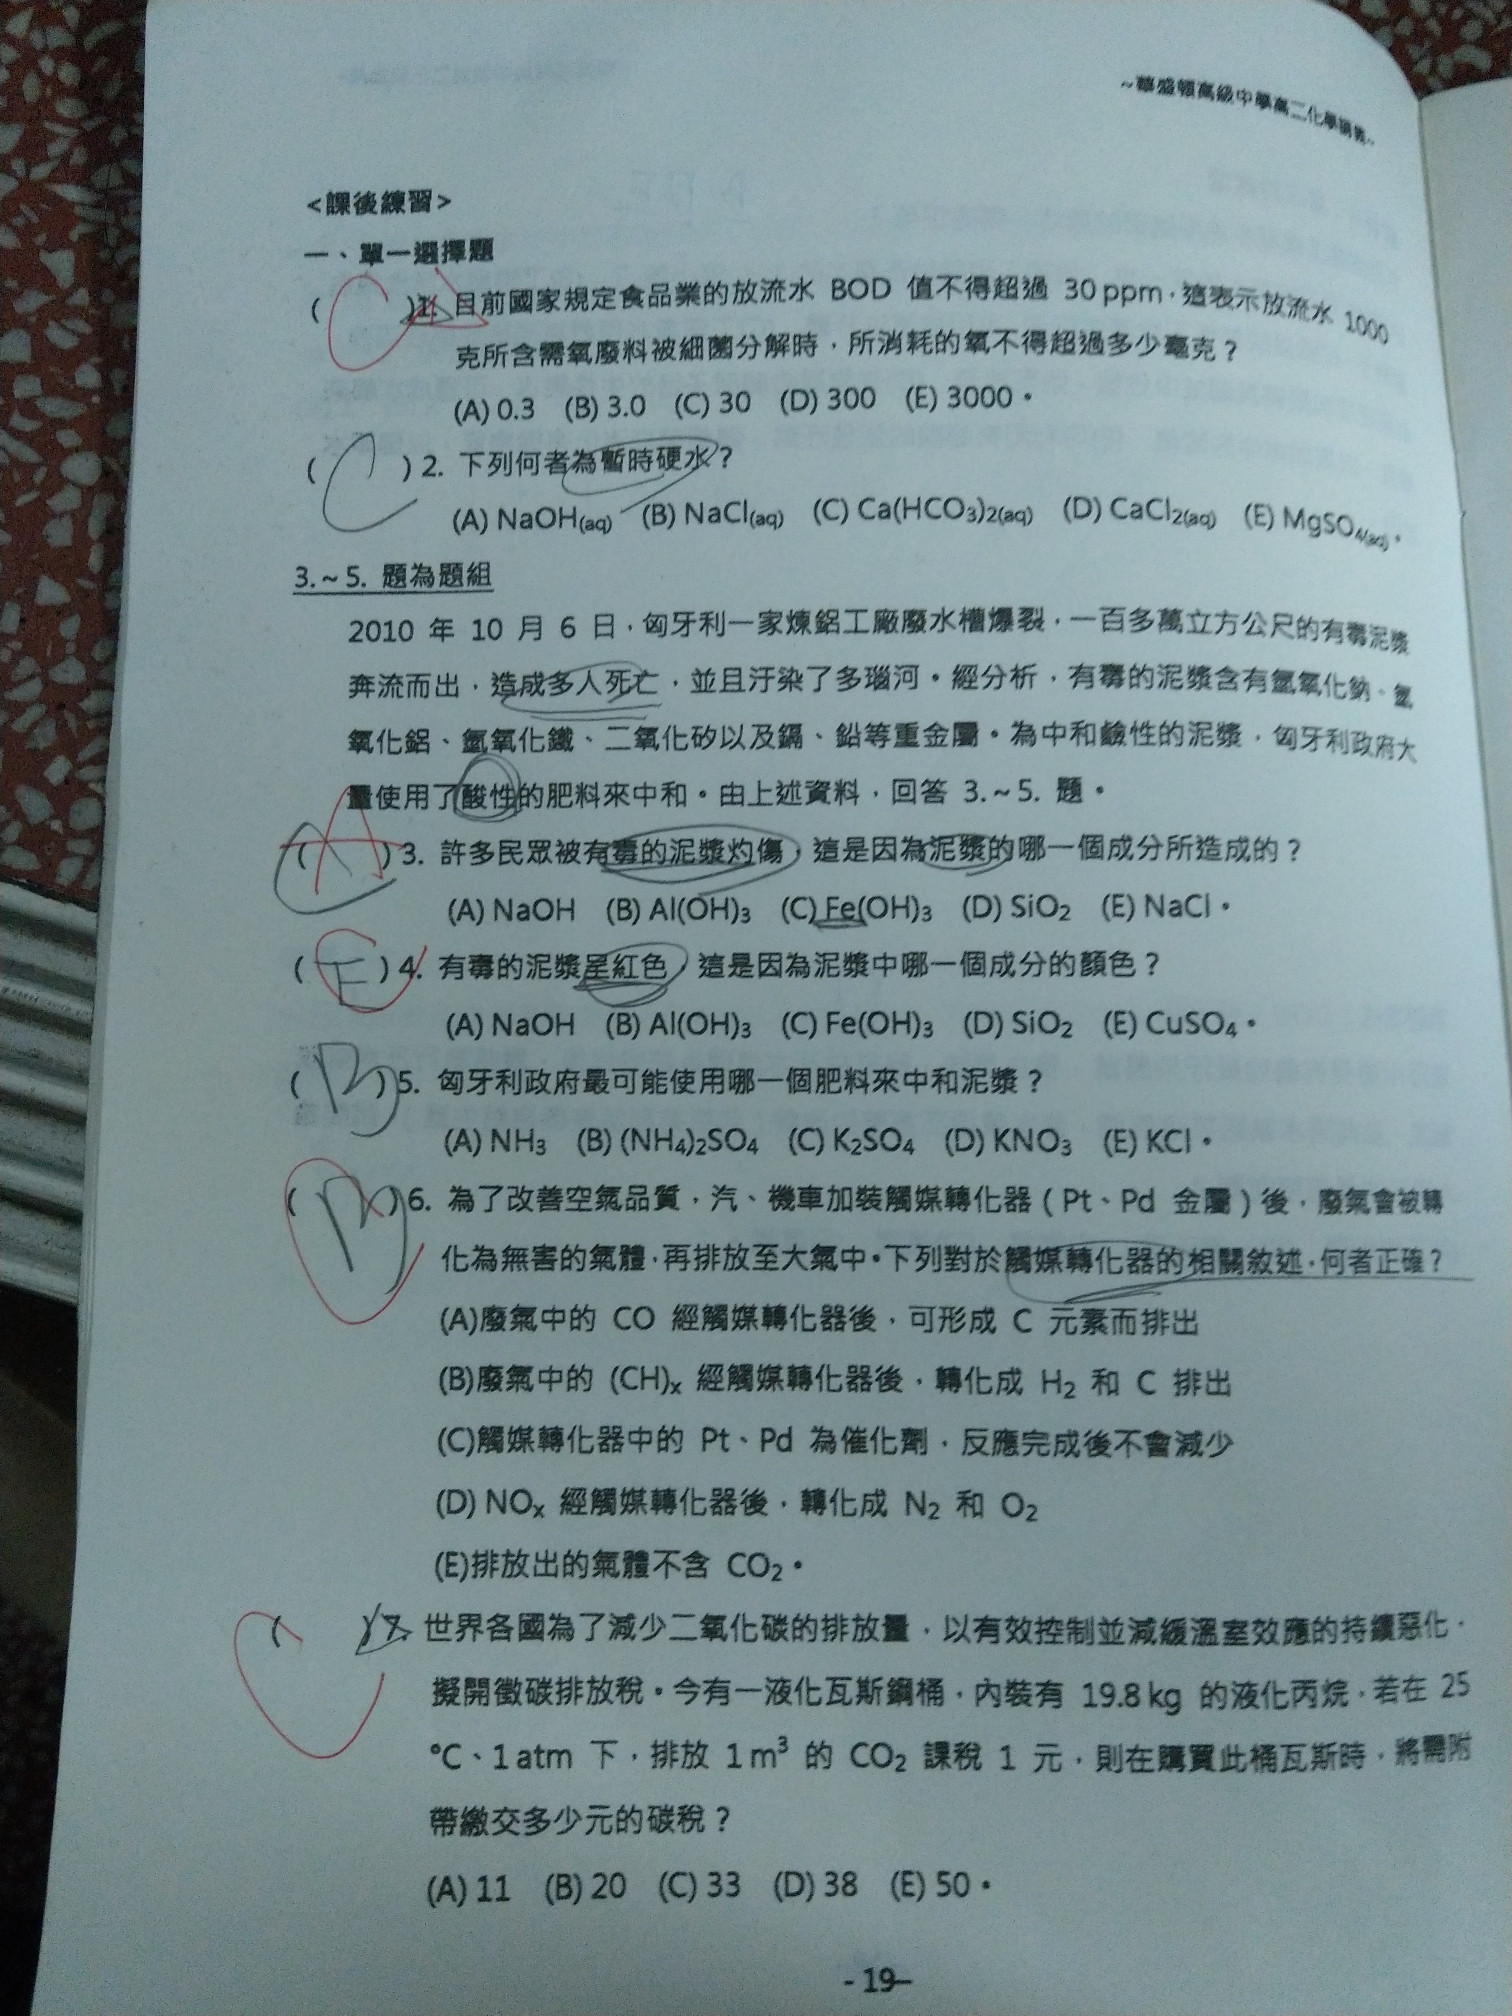 ~華盛頓高級中學高二化學講義~
<課後練習>
一、單一選擇題
( C )1. 目前國家規定食品業的放流水 BOD 值不得超過 30 ppm，這表示放流水 1000
克所含需氧廢料被細菌分解時，所消耗的氧不得超過多少毫克？
(A) 0.3 (B) 3.0 (C) 30 (D) 300 (E) 3000。
( C )2. 下列何者為暫時硬水？
(A) NaOH(aq) (B) NaCl(aq) (C) Ca(HCO₃)₂(aq) (D) CaCl₂(aq) (E) MgSO₄(aq)。
3.~5. 題為題組
2010 年 10 月 6 日，匈牙利一家煉鋁工廠廢水槽爆裂，一百多萬立方公尺的有毒泥漿
奔流而出，造成多人死亡，並且汙染了多瑙河。經分析，有毒的泥漿含有氫氧化鈉、氫
氧化鋁、氫氧化鐵、二氧化矽以及鎘、鉛等重金屬。為中和鹼性的泥漿，匈牙利政府大
量使用了酸性的肥料來中和。由上述資料，回答 3.~5. 題。
( A )3. 許多民眾被有毒的泥漿灼傷，這是因為泥漿的哪一個成分所造成的？
(A) NaOH (B) Al(OH)₃ (C) Fe(OH)₃ (D) SiO₂ (E) NaCl。
( E )4. 有毒的泥漿呈紅色，這是因為泥漿中哪一個成分的顏色？
(A) NaOH (B) Al(OH)₃ (C) Fe(OH)₃ (D) SiO₂ (E) CuSO₄。
( B )5. 匈牙利政府最可能使用哪一個肥料來中和泥漿？
(A) NH₃ (B) (NH₄)₂SO₄ (C) K₂SO₄ (D) KNO₃ (E) KCl。
( B )6. 為了改善空氣品質，汽、機車加裝觸媒轉化器（Pt、Pd 金屬）後，廢氣會被轉
化為無害的氣體，再排放至大氣中。下列對於觸媒轉化器的相關敘述，何者正確？
(A)廢氣中的 CO 經觸媒轉化器後，可形成 C 元素而排出
(B)廢氣中的 (CH)ₓ 經觸媒轉化器後，轉化成 H₂ 和 C 排出
(C)觸媒轉化器中的 Pt、Pd 為催化劑，反應完成後不會減少
(D) NOₓ 經觸媒轉化器後，轉化成 N₂ 和 O₂
(E)排放出的氣體不含 CO₂。
( C )7. 世界各國為了減少二氧化碳的排放量，以有效控制並減緩溫室效應的持續惡化，
擬開徵碳排放稅。今有一液化瓦斯鋼桶，內裝有 19.8 kg 的液化丙烷，若在 25
℃、1 atm 下，排放 1 m³ 的 CO₂ 課稅 1 元，則在購買此桶瓦斯時，將需附
帶繳交多少元的碳稅？
(A) 11 (B) 20 (C) 33 (D) 38 (E) 50。
- 19-